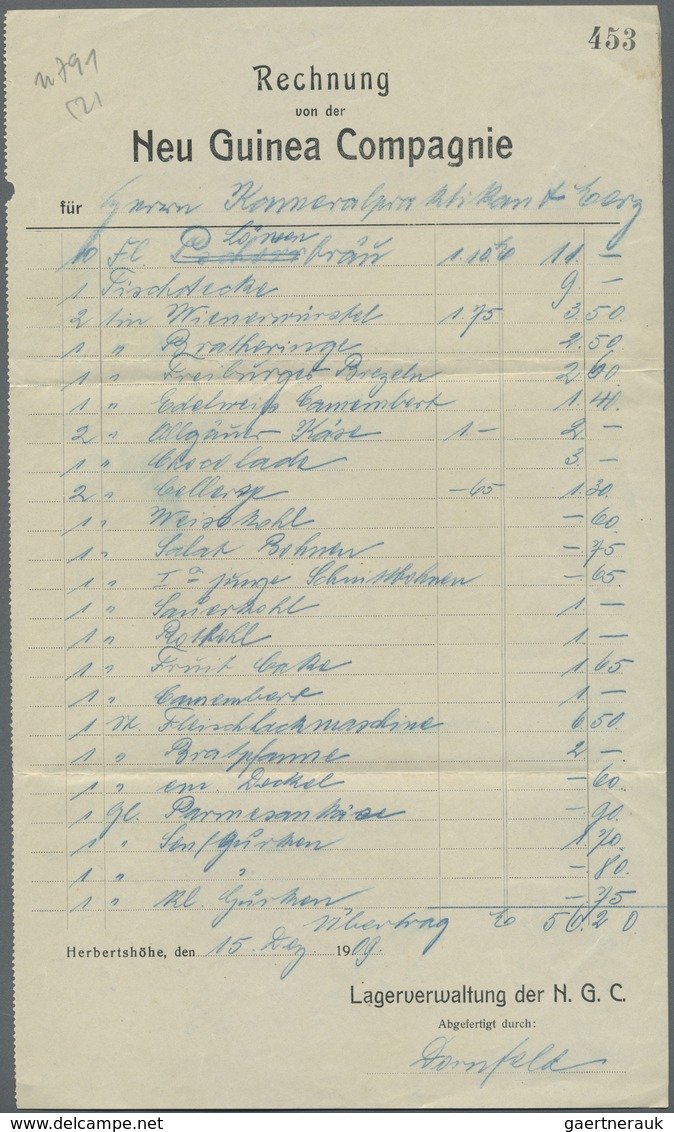 453
n 791
521
Rechnung
von der
Neu Guinea Compagnie
für Herrn Kameralpraktikant
10 Fl. Löwenbräu 1.10 11 –
1 Tischdecke 9 –
2 tin Wienerwürstel 1.75 3.50.
1 " Bratheringe 2.50
1 " Freiburger Brezeln 2 60
1 " Edelweiss Camembert 1.40.
2 " Allgäuer Käse 1 – 2 –
1 " Chocolade 3. –
2 " –65 1.30.
1 " Weisskohl –60.
1 " Salat Bohnen –75
1 " Ia junge Schnittbohnen –65.
1 " Sauerkohl 1 –
1 " Rotkohl 1 –
1 " Fruit Cake 1.65
1 " Camembert 1. –
1 St. Fleischhackmaschine 6.50.
1 " Bratpfanne 2 –
1 " em. Deckel –60
1 Gl. Parmesankäse –90.
1 " Senfgurken 1.70.
1 " " –80.
1 " Kl. Gurken –75
Übertrag 56.20
Herbertshöhe, den 15. Dez. 1909.
Lagerverwaltung der N. G. C.
Abgefertigt durch:
Dornfeld
gaertnerauk